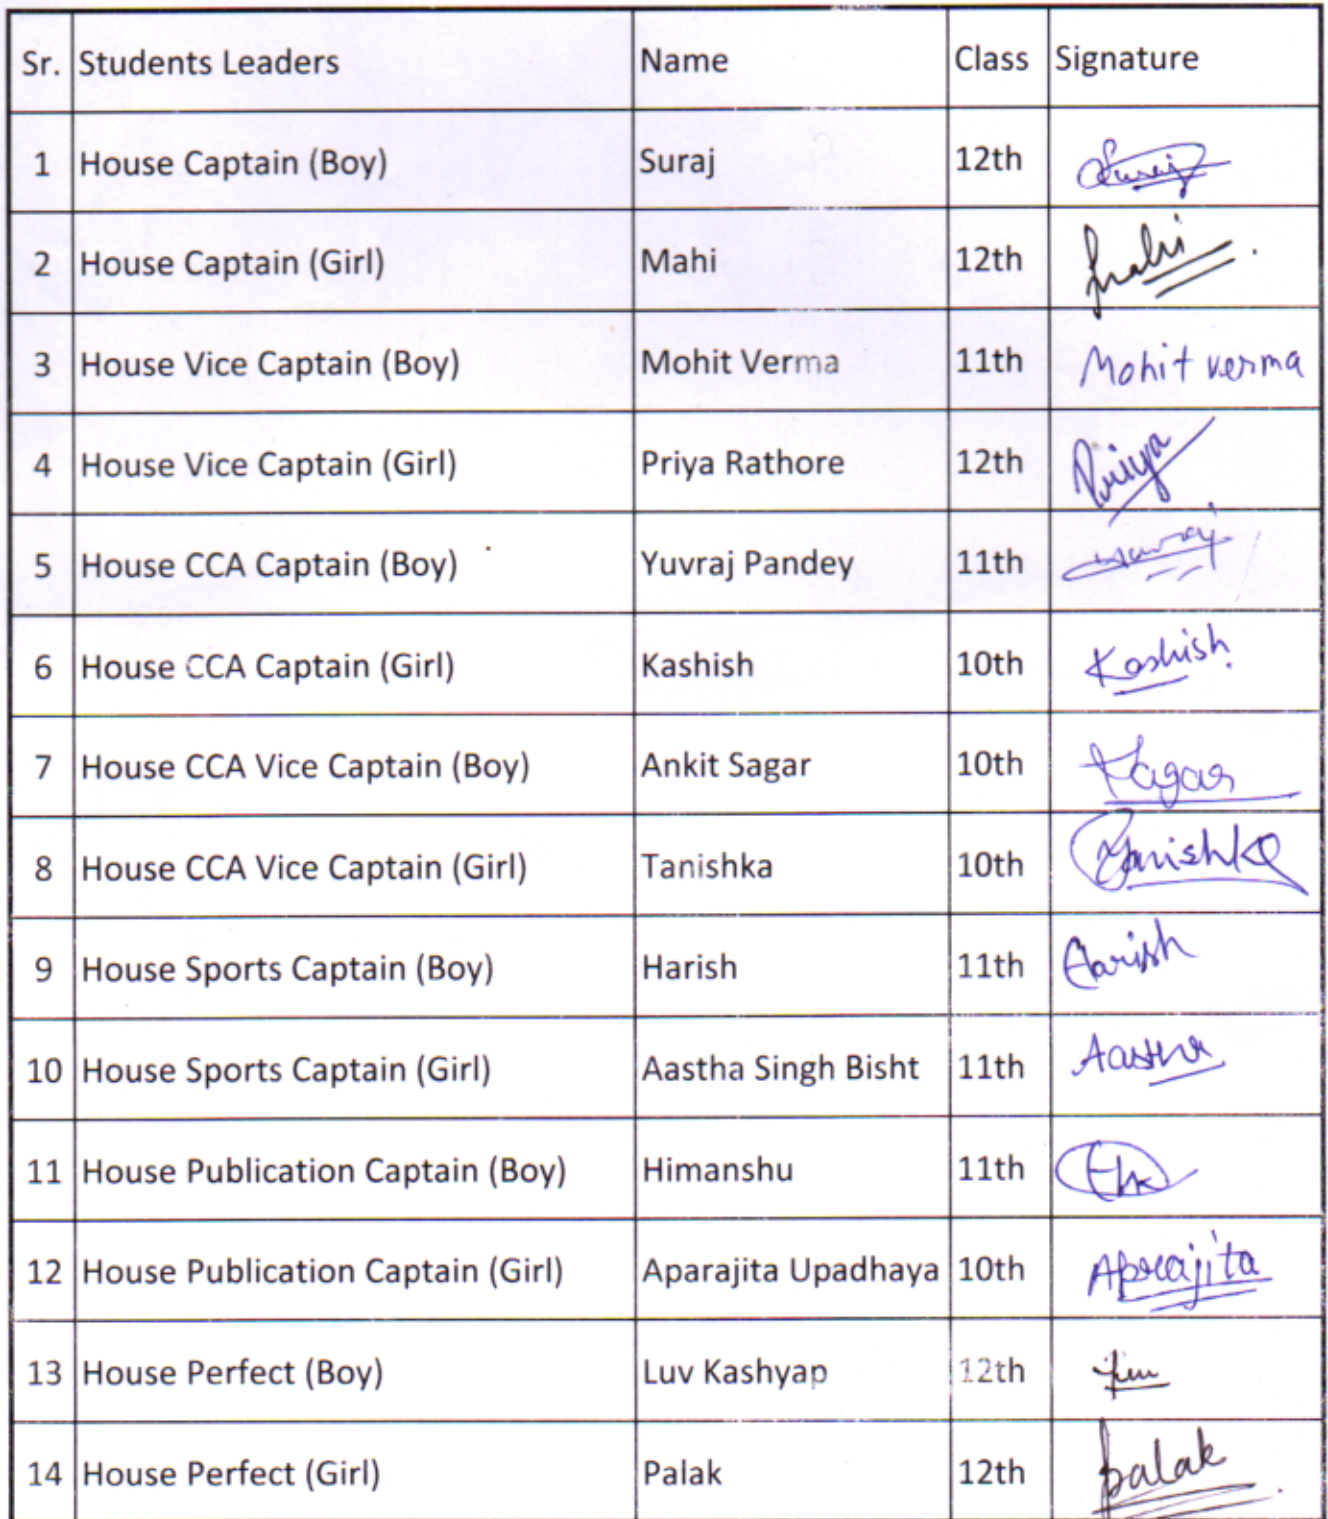 Sr. Students Leaders Name Class Signature
1 House Captain (Boy) Suraj 12th Suraj
2 House Captain (Girl) Mahi 12th Mahi
3 House Vice Captain (Boy) Mohit Verma 11th Mohit verma
4 House Vice Captain (Girl) Priya Rathore 12th Priya
5 House CCA Captain (Boy) Yuvraj Pandey 11th Yuvraj
6 House CCA Captain (Girl) Kashish 10th Kashish
7 House CCA Vice Captain (Boy) Ankit Sagar 10th
8 House CCA Vice Captain (Girl) Tanishka 10th Tanishka
9 House Sports Captain (Boy) Harish 11th Harish
10 House Sports Captain (Girl) Aastha Singh Bisht 11th Aastha
11 House Publication Captain (Boy) Himanshu 11th
12 House Publication Captain (Girl) Aparajita Upadhaya 10th Aprajita
13 House Perfect (Boy) Luv Kashyap 12th
14 House Perfect (Girl) Palak 12th Palak